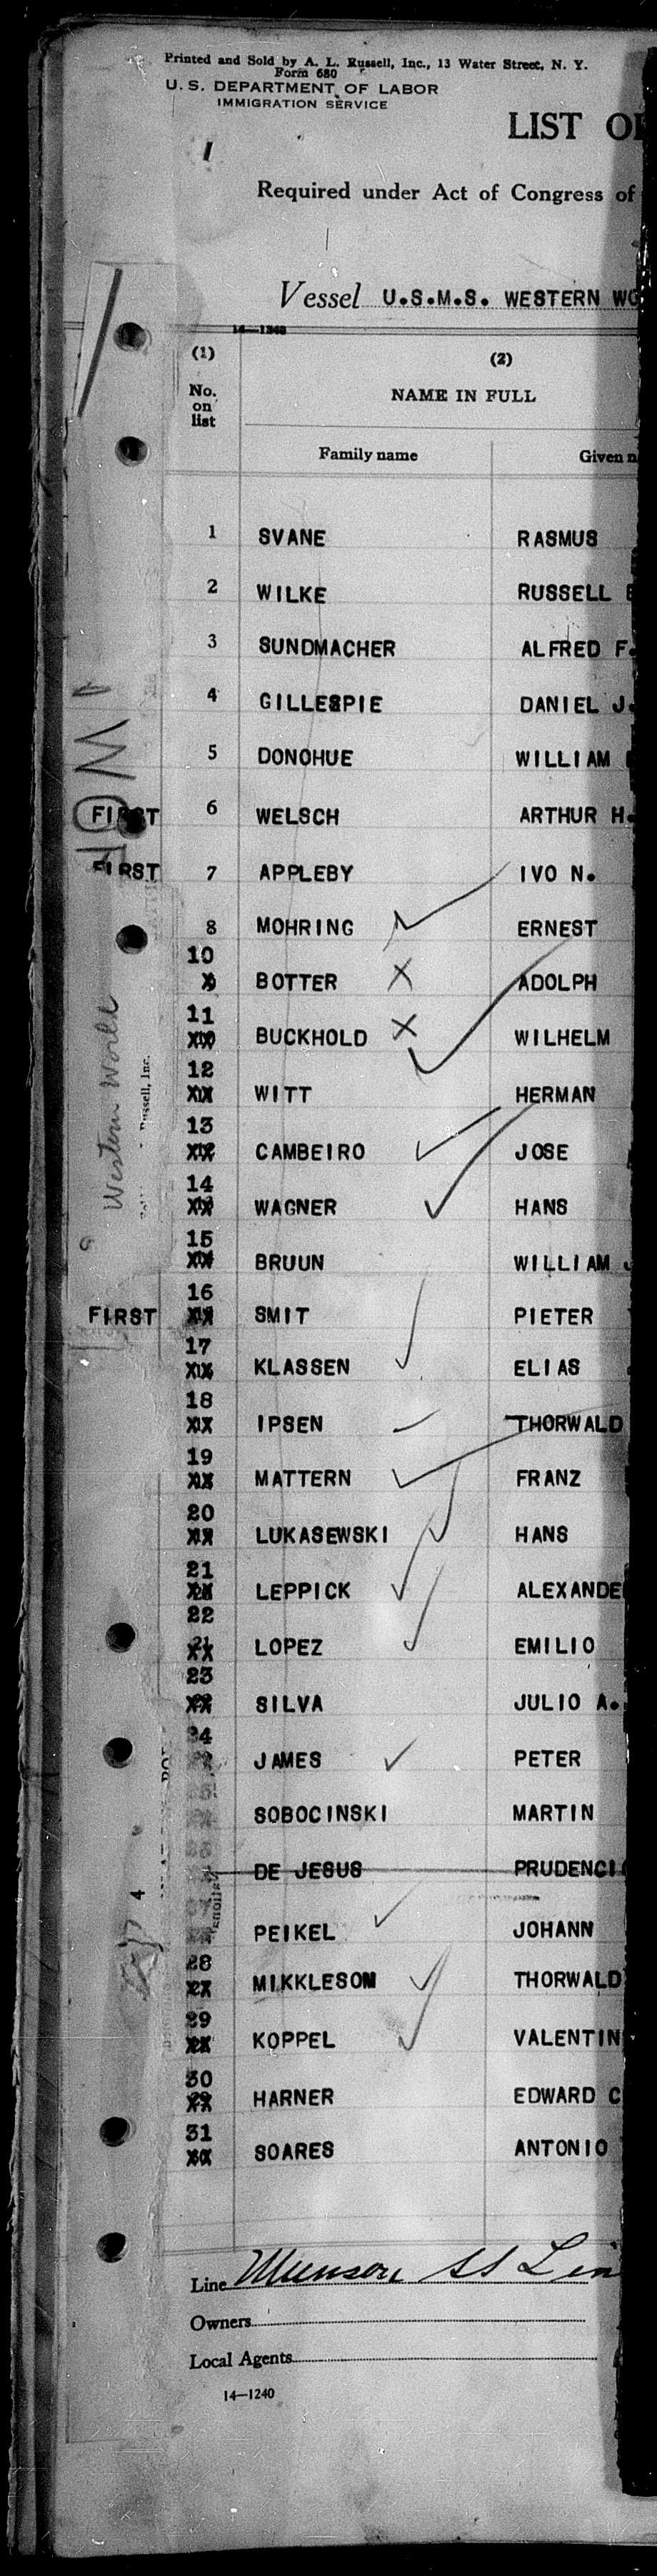 Printed and Sold by A. L. Russell, Inc., 13 Water Street, N. Y.
Form 680
U. S. DEPARTMENT OF LABOR
IMMIGRATION SERVICE
LIST OF
Required under Act of Congress of
Vessel U.S.M.S. WESTERN WO
14—1240
(1) (2)
No. on list
NAME IN FULL
Family name Given n
1 SVANE RASMUS
2 WILKE RUSSELL
3 SUNDMACHER ALFRED F.
4 GILLESPIE DANIEL J.
5 DONOHUE WILLIAM
FIRST 6 WELSCH ARTHUR H.
FIRST 7 APPLEBY IVO N.
8 MOHRING ERNEST
10 BOTTER X ADOLPH
11 BUCKHOLD X WILHELM
12 WITT HERMAN
13 CAMBEIRO JOSE
14 WAGNER HANS
15 BRUUN WILLIAM
FIRST 16 SMIT PIETER
17 KLASSEN ELIAS
18 IPSEN THORWALD
19 MATTERN FRANZ
20 LUKASEWSKI HANS
21 LEPPICK ALEXANDE
22 LOPEZ EMILIO
23 SILVA JULIO A.
24 JAMES PETER
SOBOCINSKI MARTIN
DE JESUS PRUDENCI
PEIKEL JOHANN
28 MIKKLESOM THORWALD
29 KOPPEL VALENTIN
30 HARNER EDWARD C
31 SOARES ANTONIO
Western World
Russell, Inc.
4
Line Munson SS Lin
Owners
Local Agents
14—1240